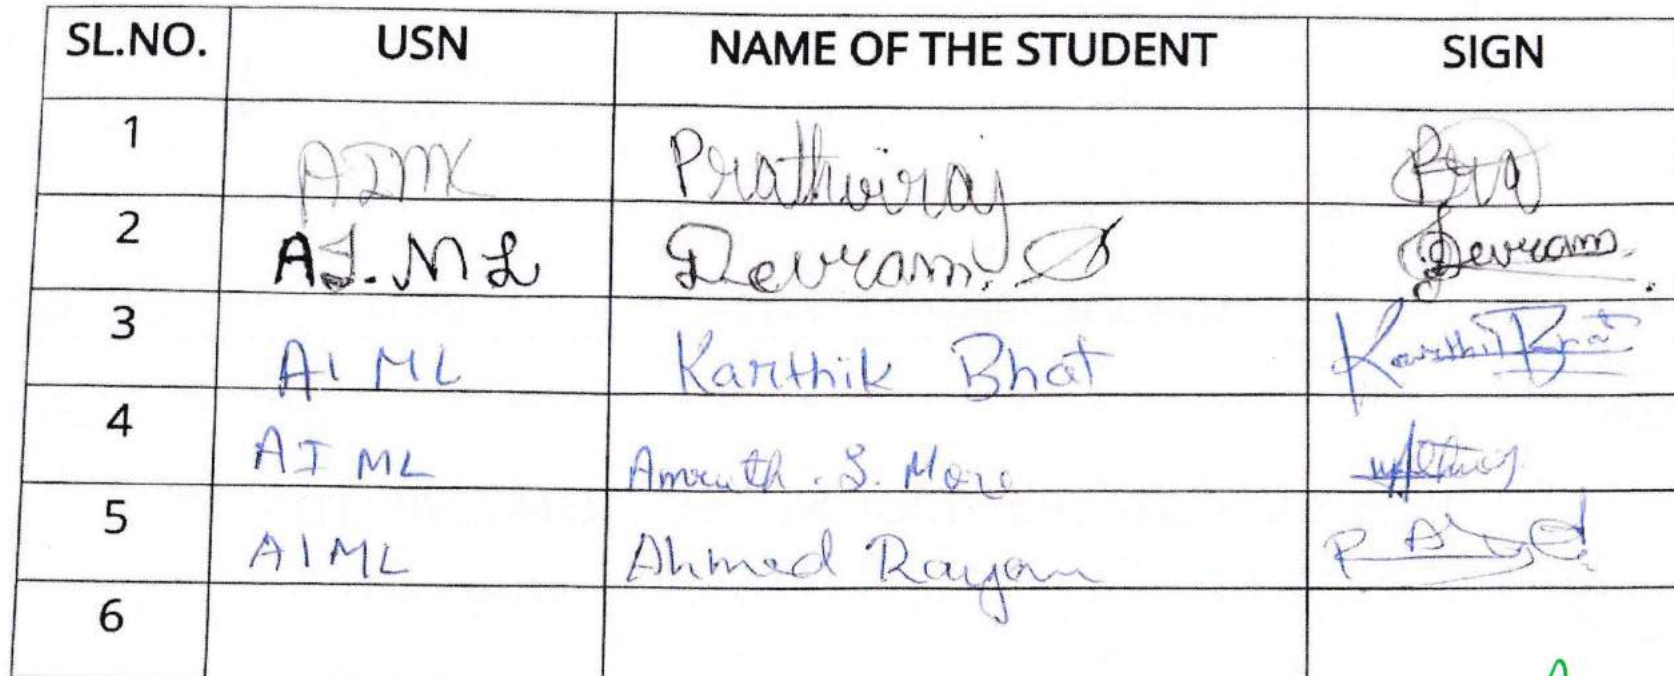 SL.NO. USN NAME OF THE STUDENT SIGN
1 AIML Prathviraj
2 AI.ML Devram. D Devram.
3 AI ML Karthik Bhat Karthik Bhat
4 AI ML Amruth . S. More
5 AIML Ahmed Rayan
6